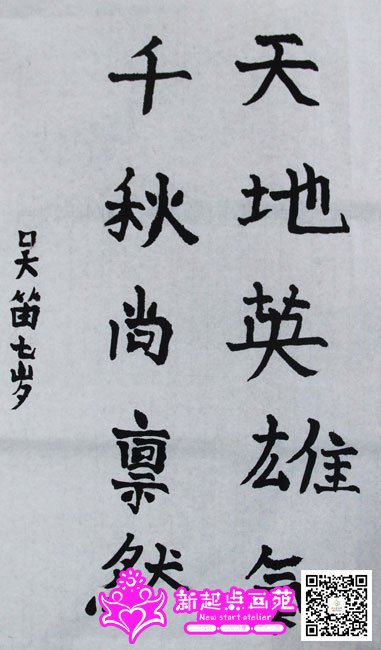 天地英雄气
千秋尚凛然
吴笛七岁
新起点画苑
New start atelier